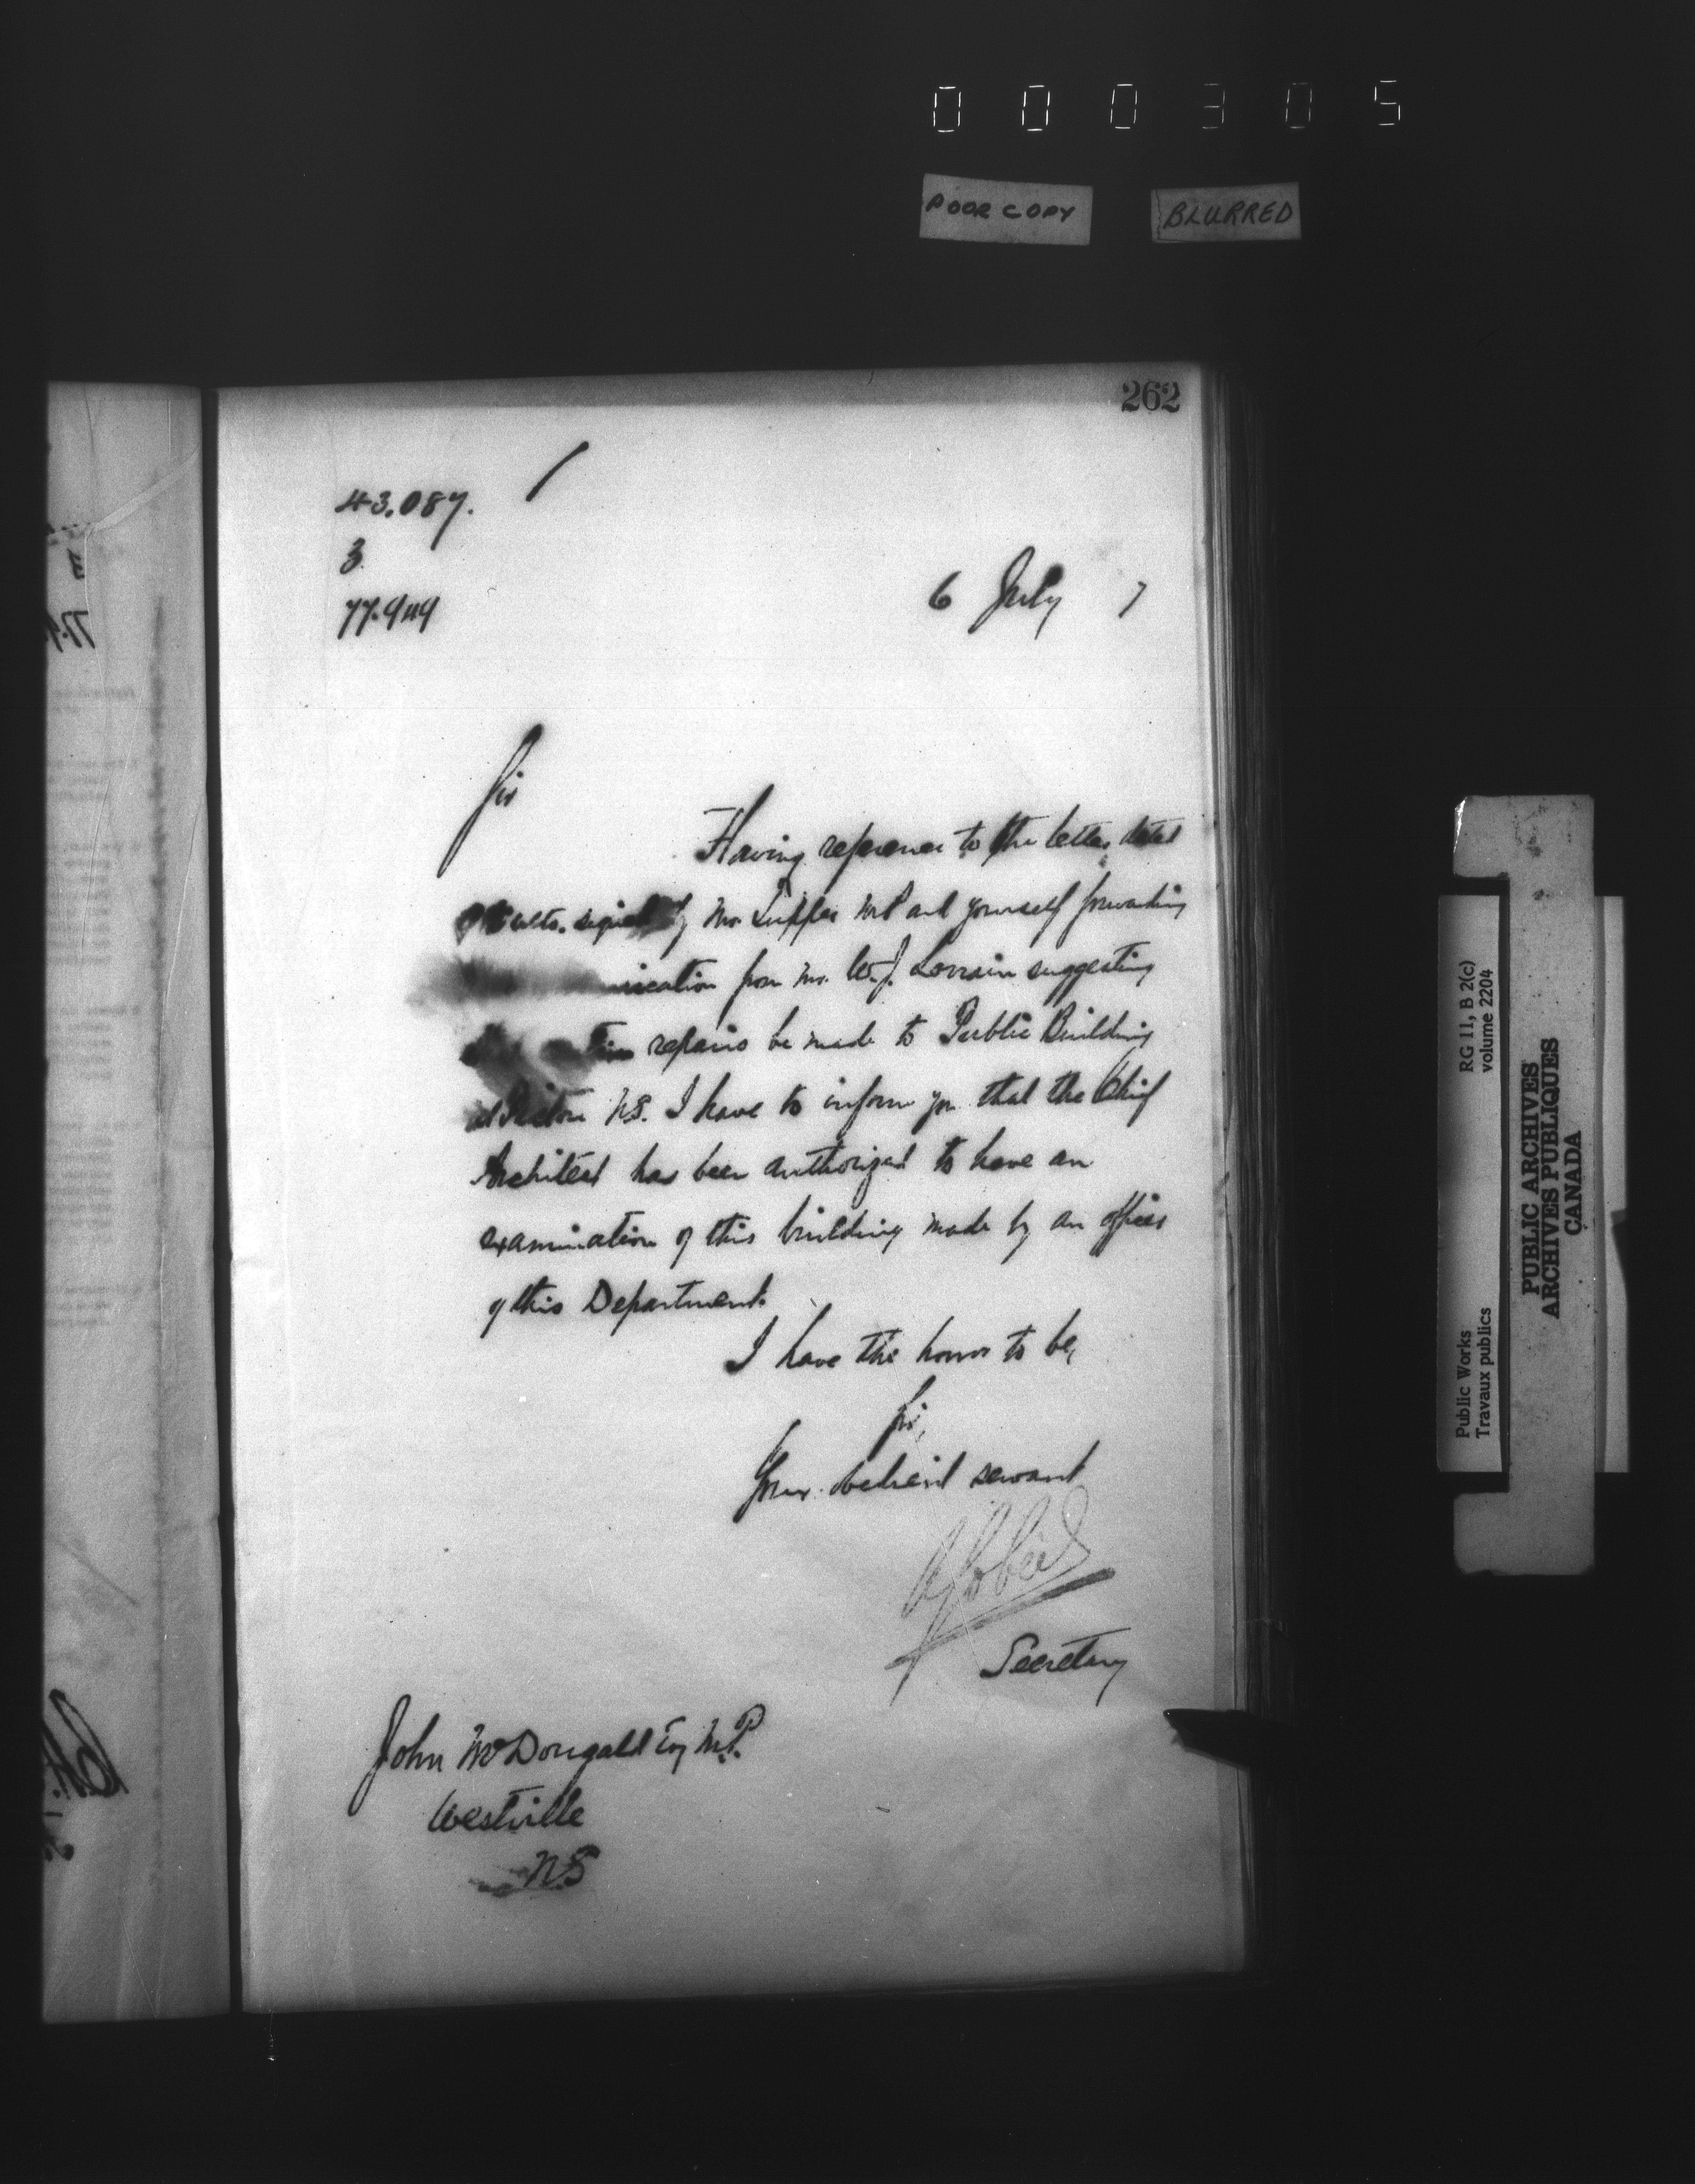 000305
POOR COPY
BLURRED
262
43.087.
3
77.949
6 July 7
Sir
Having reference to the letter dated
ulto. signed by Mr Tupper M.P. and yourself forwarding
from Mr. W.J. Lorrain suggesting
repairs be made to Public Building
at Pictou N.S. I have to inform you that the Chief
Architect has been authorized to have an
examination of this building made by an officer
of this Department.
I have the honor to be,
Sir,
Your obedient servant
Secretary
John McDougald Esq M.P.
Westville
N.S
Public Works
Travaux publics
RG 11, B 2(c)
volume 2204
PUBLIC ARCHIVES
ARCHIVES PUBLIQUES
CANADA